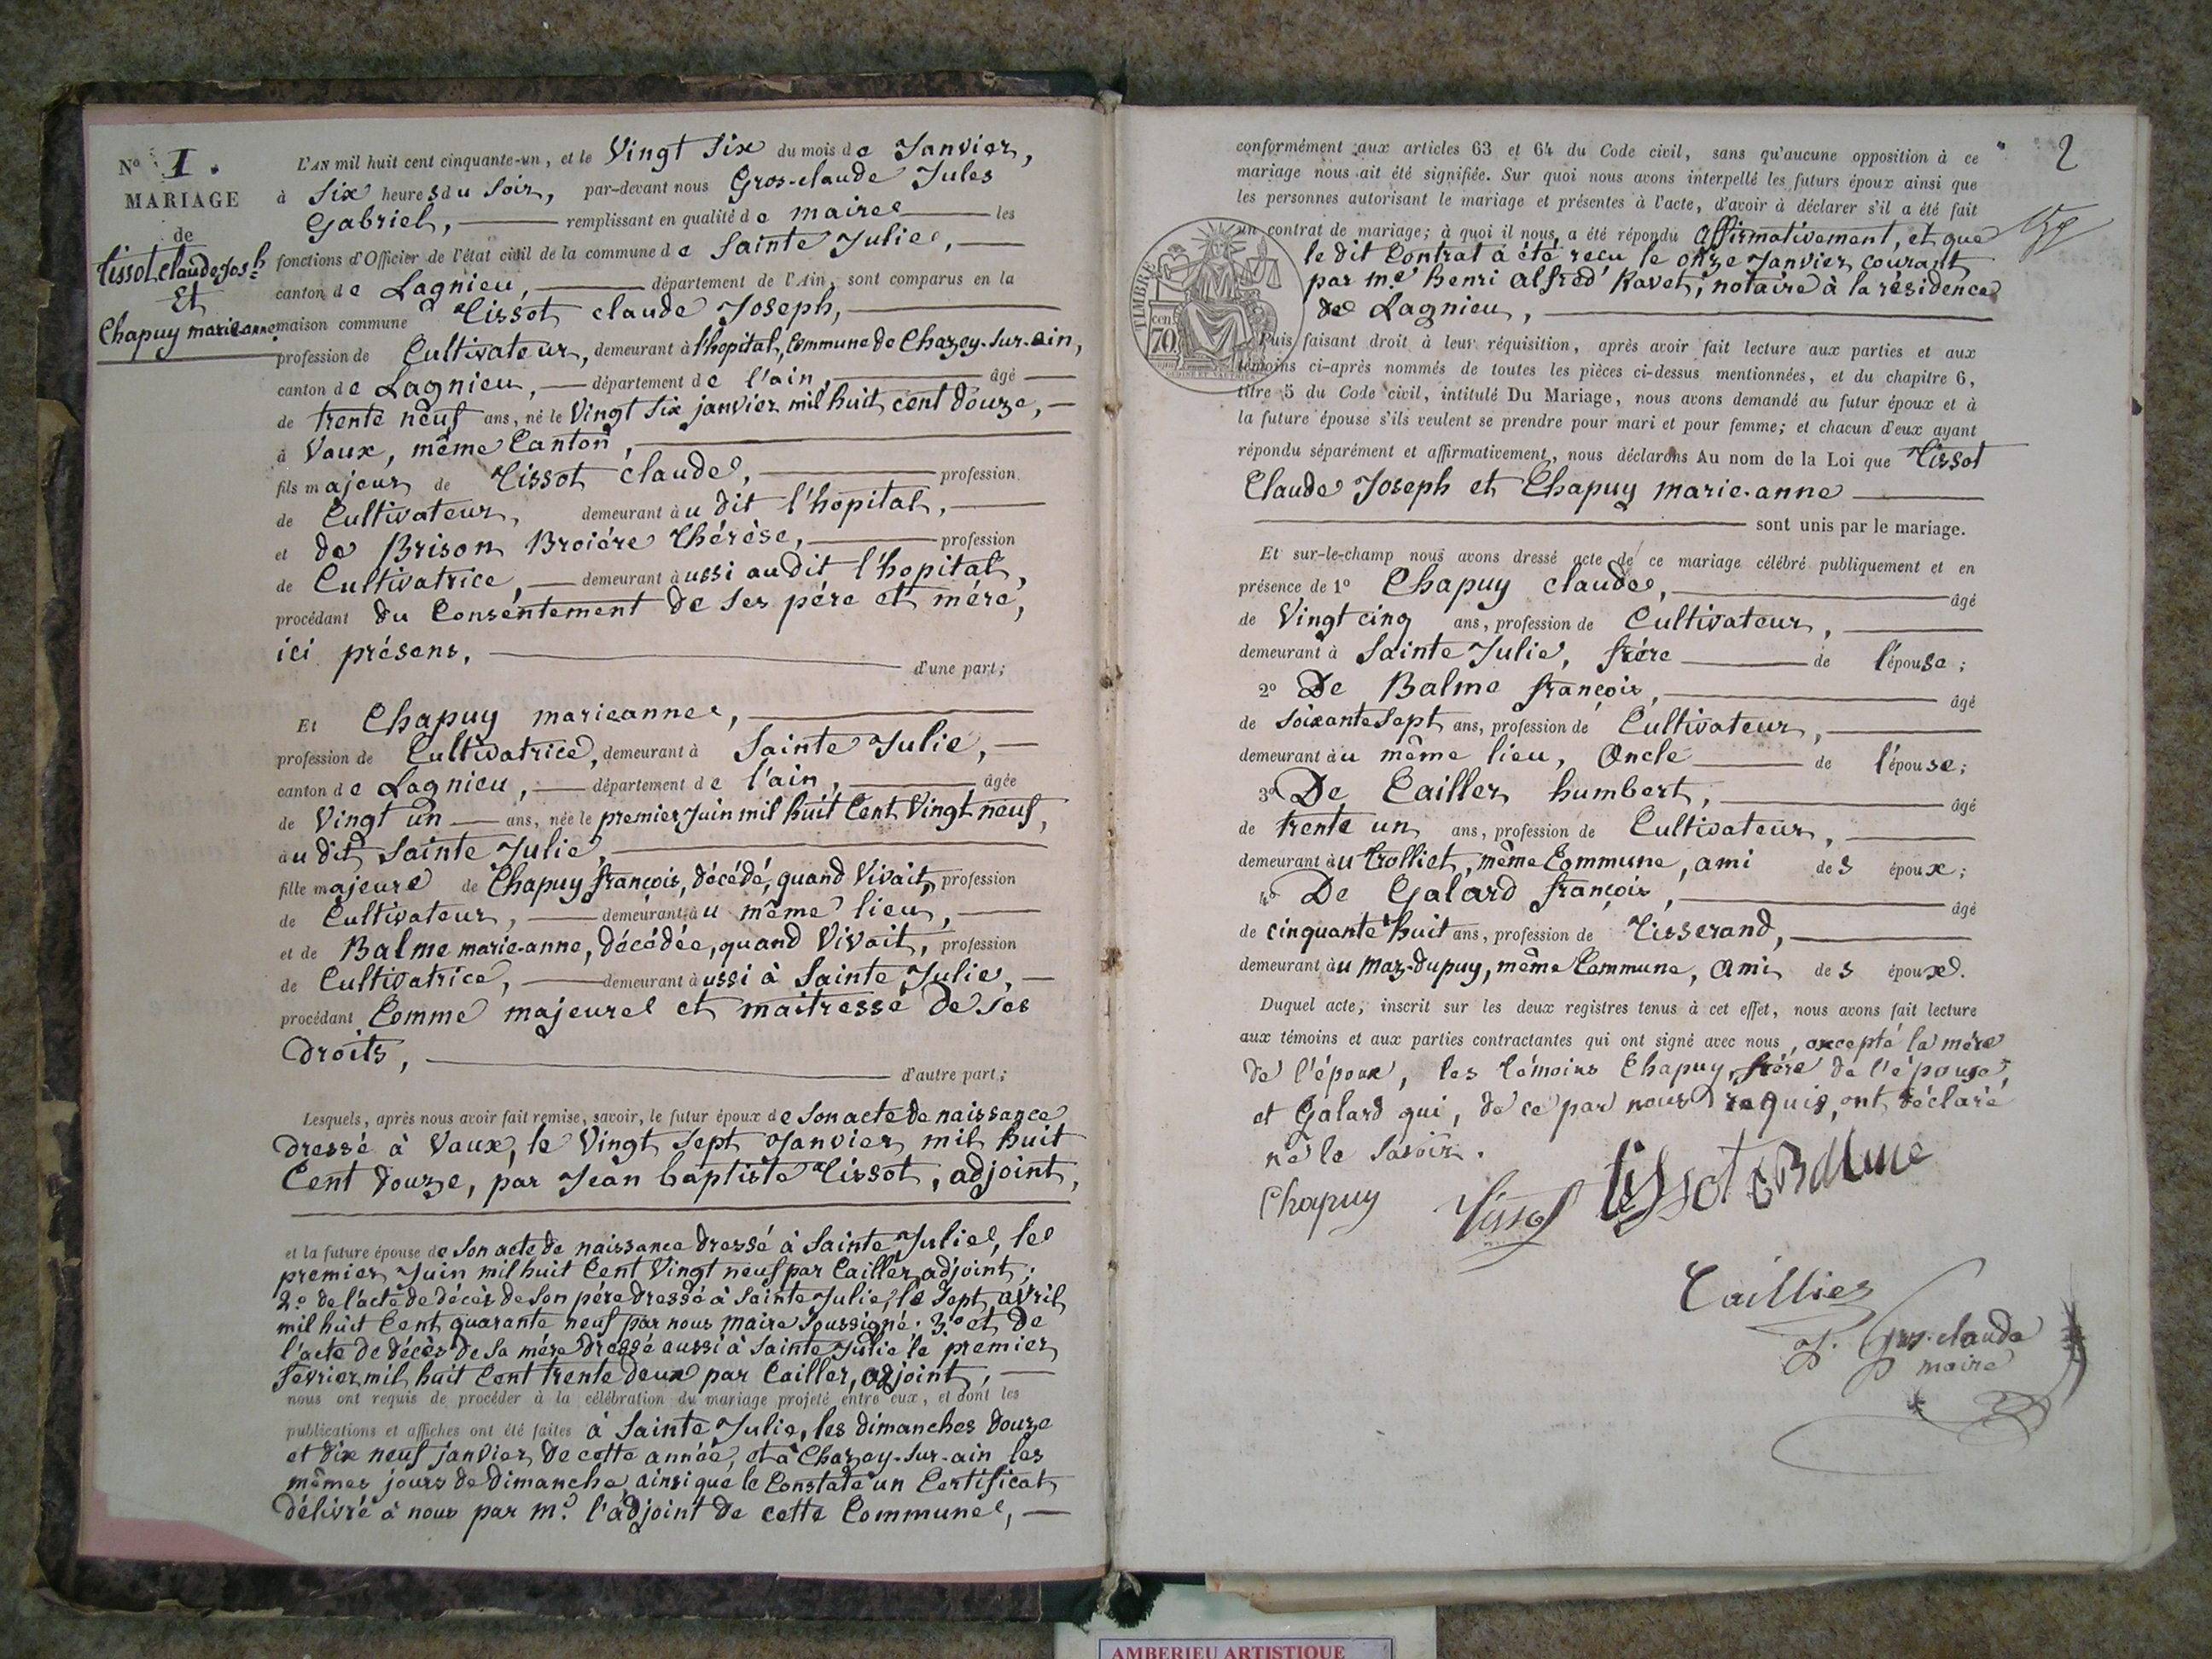 N° 1.
MARIAGE
de
tissot claude Josh
Et
Chapuy marie anne.
L'AN mil huit cent cinquante-un, et le Vingt Six du mois de Janvier,
à Six heures du Soir, par-devant nous Gros-claude Jules
Gabriel, remplissant en qualité de maire les
fonctions d'Officier de l'état civil de la commune de Sainte Julie,
canton de Lagnieu, département de l'Ain, sont comparus en la
maison commune Tissot claude Joseph,
profession de Cultivateur, demeurant à l'hopital, Commune de Chazey-sur-ain,
canton de Lagnieu, département de l'ain, âgé
de trente neuf ans, né le Vingt Six janvier mil huit cent douze,
à Vaux, même Canton,
fils majeur de Tissot claude, profession
de Cultivateur, demeurant au dit l'hopital,
et de Brison Broiére thérèse, profession
de Cultivatrice, demeurant aussi au dit l'hopital,
procédant du Consentement de ses pére et mére,
ici présens, d'une part;
Et Chapuy marieanne,
profession de Cultivatrice, demeurant à Sainte Julie,
canton de Lagnieu, département de l'ain, âgée
de Vingt un ans, née le premier Juin mil huit Cent Vingt neuf,
au dit Sainte Julie,
fille majeure de Chapuy françois, décédé, quand Vivait, profession
de Cultivateur, demeurant au même lieu,
et de Balme marie-anne, décédée, quand Vivait, profession
de Cultivatrice, demeurant aussi à Sainte Julie,
procédant Comme majeure et maitresse de ses
droits, d'autre part;
Lesquels, après nous avoir fait remise, savoir, le futur époux de Son acte de naissance
dressé à Vaux, le Vingt Sept Janvier mil huit
Cent douze, par Jean baptiste Tissot, adjoint,
et la future épouse de Son acte de naissance dressé à Sainte Julie, le
premier Juin mil huit Cent Vingt neuf par Cailler, adjoint;
2° de l'acte de décès de Son pére dressé à Sainte Julie, le Sept avril
mil huit Cent quarante neuf par nous maire Soussigné. 3° et de
l'acte de décès de Sa mére dressé aussi à Sainte Julie le premier
fevrier mil huit Cent trente deux par Cailler, adjoint,
nous ont requis de procéder à la célébration du mariage projeté entre eux, et dont les
publications et affiches ont été faites à Sainte Julie, les dimanches douze
et dix neuf janvier de cette année, et à Chazey-sur-ain les
mêmes jours de dimanche, ainsi que le Constate un Certificat
délivré à nous par mr. l'adjoint de cette Commune,
2
conformément aux articles 63 et 64 du Code civil, sans qu'aucune opposition à ce
mariage nous ait été signifiée. Sur quoi nous avons interpellé les futurs époux ainsi que
les personnes autorisant le mariage et présentes à l'acte, d'avoir à déclarer s'il a été fait
un contrat de mariage; à quoi il nous a été répondu affirmativement, et que
le dit Contrat a été reçu le onze Janvier courant
par me. henri alfred Ravet, notaire à la résidence
de Lagnieu,
TIMBRE
cent
70
Puis faisant droit à leur réquisition, après avoir fait lecture aux parties et aux
témoins ci-après nommés de toutes les pièces ci-dessus mentionnées, et du chapitre 6,
titre 5 du Code civil, intitulé Du Mariage, nous avons demandé au futur époux et à
la future épouse s'ils veulent se prendre pour mari et pour femme; et chacun d'eux ayant
répondu séparément et affirmativement, nous déclarons Au nom de la Loi que Tissot
Claude Joseph et Chapuy marie-anne
sont unis par le mariage.
Et sur-le-champ nous avons dressé acte de ce mariage célébré publiquement et en
présence de 1° Chapuy claude, âgé
de Vingt cinq ans, profession de Cultivateur,
demeurant à Sainte Julie, frére de l'épouse;
2° De Balme françois, âgé
de soixante Sept ans, profession de Cultivateur,
demeurant au même lieu, Oncle de l'épouse;
3° De Cailler humbert, âgé
de trente un ans, profession de Cultivateur,
demeurant au trolliet, même Commune, ami des époux;
4° De Galard françois, âgé
de cinquante huit ans, profession de Tisserand,
demeurant au maz-dupuy, même Commune, ami des époux.
Duquel acte, inscrit sur les deux registres tenus à cet effet, nous avons fait lecture
aux témoins et aux parties contractantes qui ont signé avec nous, excepté la mére
de l'époux, les témoins Chapuy, frére de l'épouse,
et Galard qui, de ce par nous requis, ont déclaré
ne le Savoir.
Chapuy Tissot tissot Balme
Caillier
J. Gros-claude
maire
AMBERIEU ARTISTIQUE